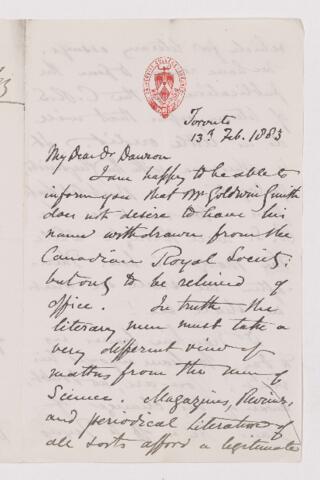 Toronto
13th Feb. 1883
My Dear Dr Dawson
I am happy to be able to
inform you that Mr Goldwin Smith
does not desire to have his
name withdrawn from the
Canadian Royal Society:
but only to be relieved of
office. In truth the
literary men must take a
very different view of
matters from the men of
Science. Magazines, Reviews,
and periodical literature of
all sorts afford a legitimate